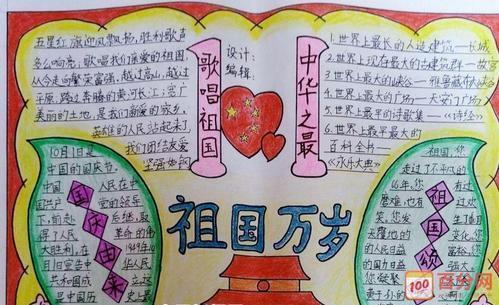 五星红旗迎风飘扬,胜利歌声
多么响亮;歌唱我们亲爱的祖国,
从今走向繁荣富强,越过高山,越过
平原,跨过奔腾的黄河长江;宽广
美丽的土地,是我们亲爱的家乡,
英雄的人民站起来了
我们团结友爱
坚强如钢
歌唱祖国
设计:
编辑:
中华之最
1.世界上最长的人造建筑——长城
2.世界上现存最大的古建筑群——故宫
3.世界上最大的峡谷——雅鲁藏布大峡谷
4.世界上最大的广场——天安门广场
5.世界上最早的诗歌集——《诗经》
6.世界上最早最大的
百科全书——
《永乐大典》
10月1日是
中国的国庆节,
中国人民在中
国共产党的领导
下,前赴后继,取
得了人民革命的伟
大胜利,在1949年10
月1日宣告中华人民
共和国成立
是中国历史上最
国庆由来
祖国万岁
祖国,您
走过了不平凡的
66年,您有过
磨难,也有过
欢笑,您发生了
天翻地覆的变化,
人民日益富裕,您
的国力日益强大,
您凝聚
祖国颂
100
百分网